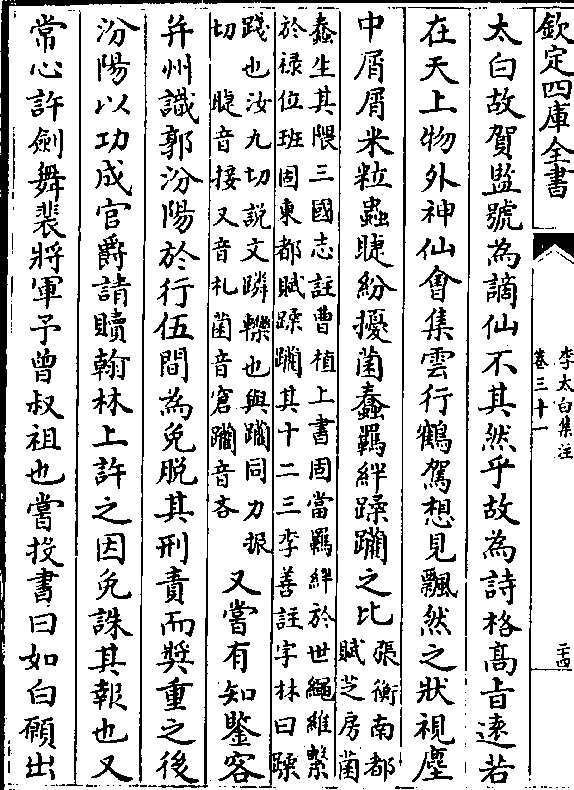 欽定四庫全書
李太白集注
卷三十一
二十四
太白故賀監號為謫仙不其然乎故為詩格高旨遠若
在天上物外神仙會集雲行鶴駕想見飄然之狀視塵
中屑屑米粒蟲睫紛擾菌蠢羈絆蹂躪之比
張衡南都
賦芝房菌
蠢生其隈三國志註曹植上書固當羈絆於世繩維繫
於祿位班固東都賦蹂躪其十二三李善註字林曰蹂
踐也汝九切說文蹸轢也與躪同力振
切睫音接又音札菌音窘躪音吝
又嘗有知鑒客
并州識郭汾陽於行伍間為免脫其刑責而奬重之後
汾陽以功成官爵請贖翰林上許之因免誅其報也又
常心許劍舞裴將軍予曾叔祖也嘗投書曰如白願出